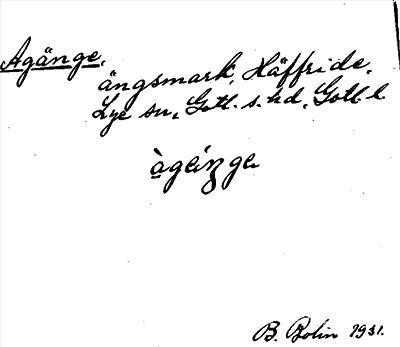 Agänge,
ängsmark, Häffride,
Lye sn, Gotl. s. hd, Gotl. l.
àgéŋge
B. Bolin 1931.